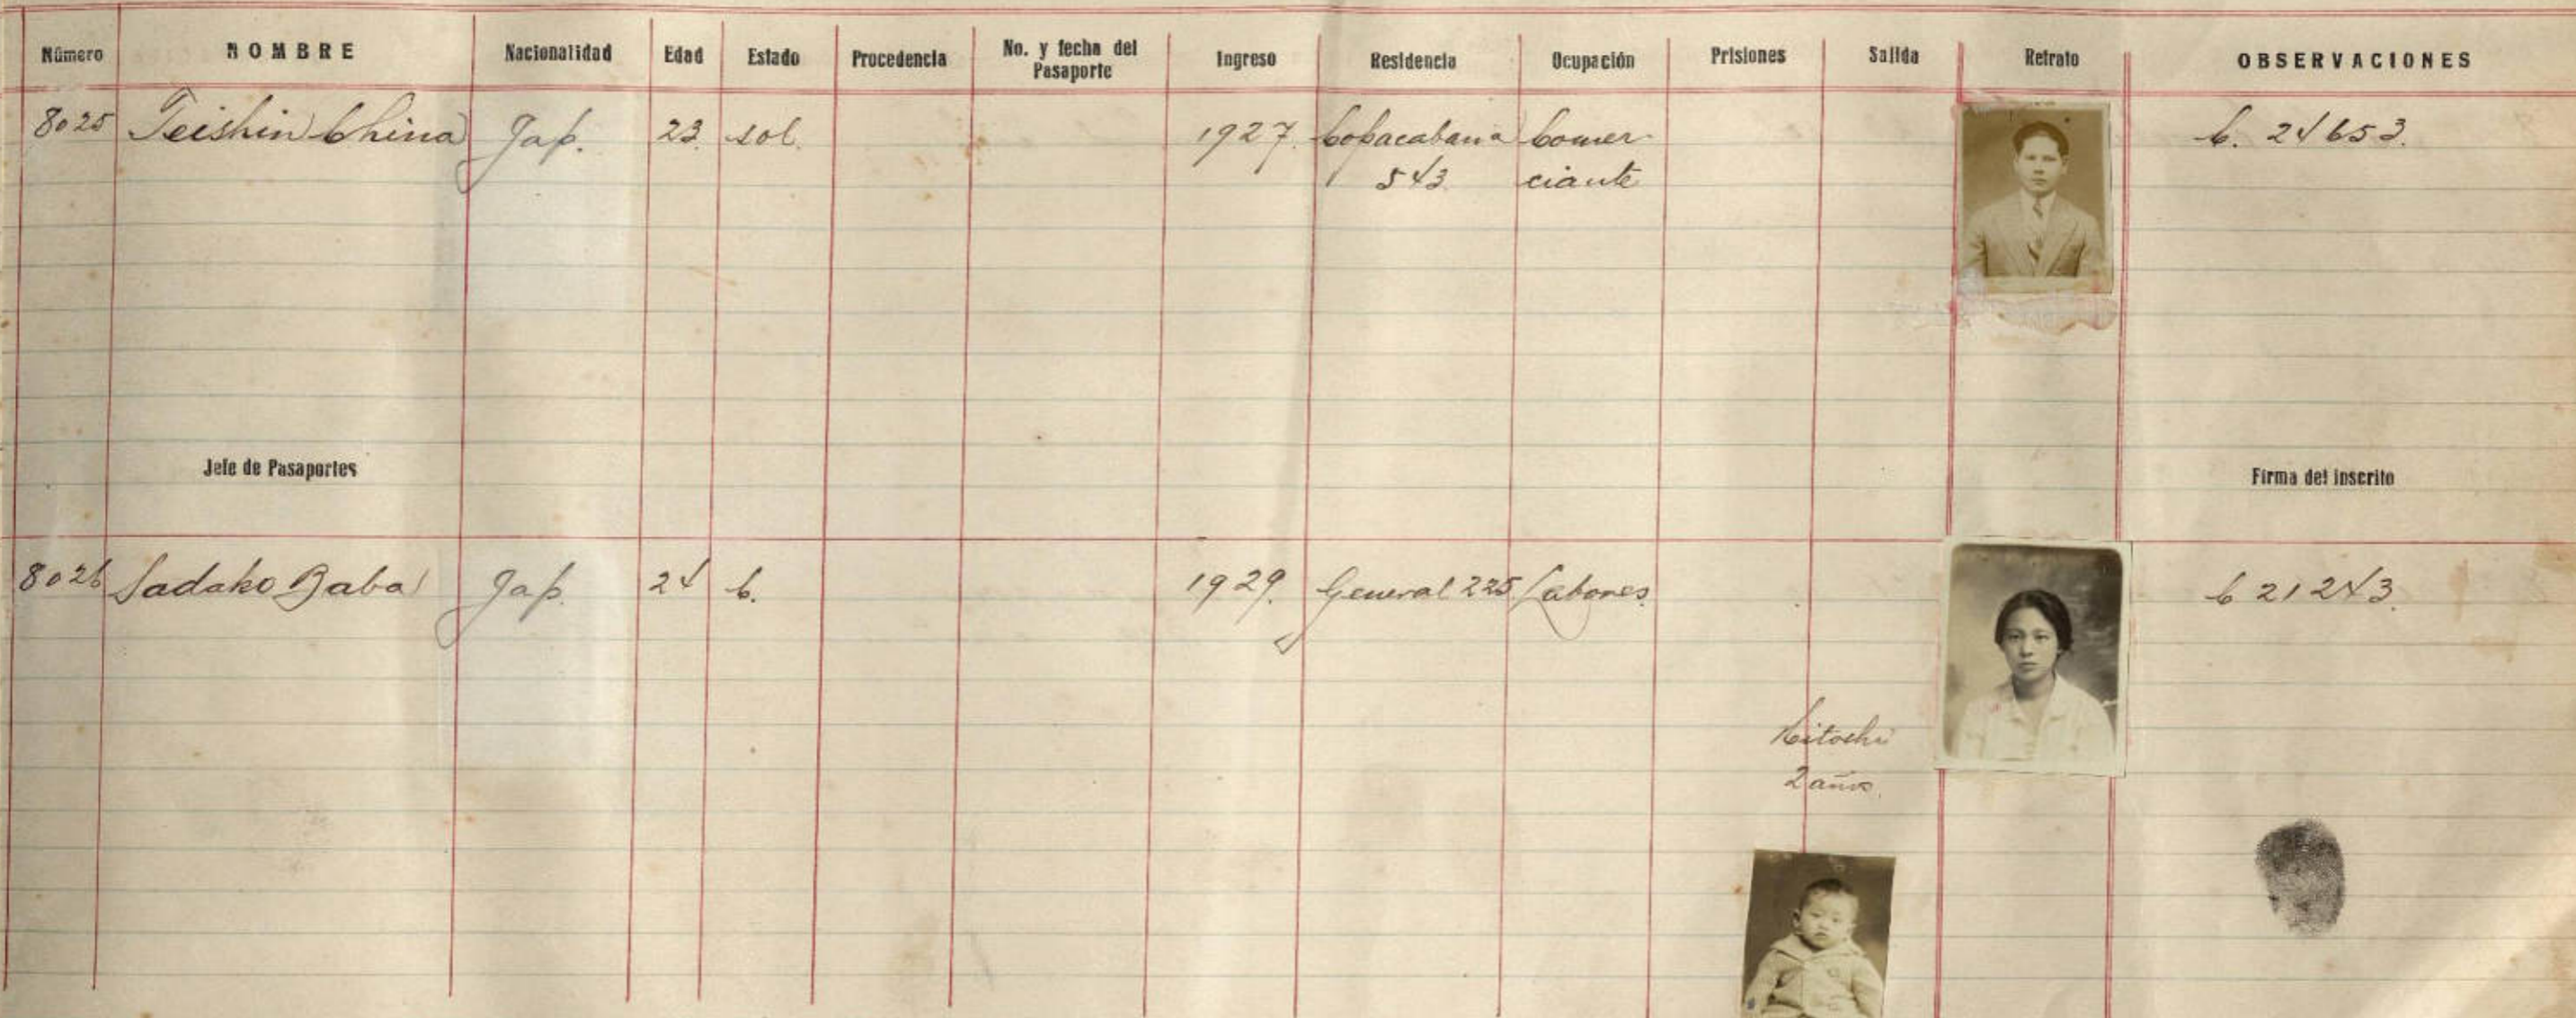 Número NOMBRE Nacionalidad Edad Estado Procedencia No. y fecha del Pasaporte Ingreso Residencia Ocupación Prisiones Salida Retrato OBSERVACIONES
8025 Teishin China Jap. 23. sol. 1927. Copacabana Comer- C. 24653.
543. ciante
Jefe de Pasaportes Firma del inscrito
8026 Sadako Baba Jap. 24 C. 1929. General 225 Labores. C 21243.
Hitoshi
2 años.